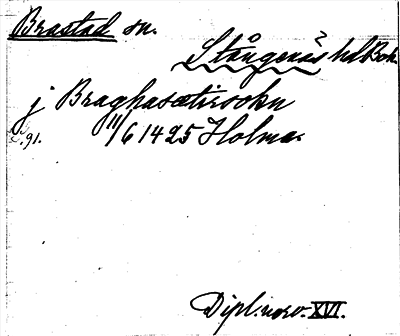 Brastad sn.
Stångenäs hd Boh.
j Braghasætirsokn
c. 91. 11/6 1425 Holma.
Dipl. norv. XVI.